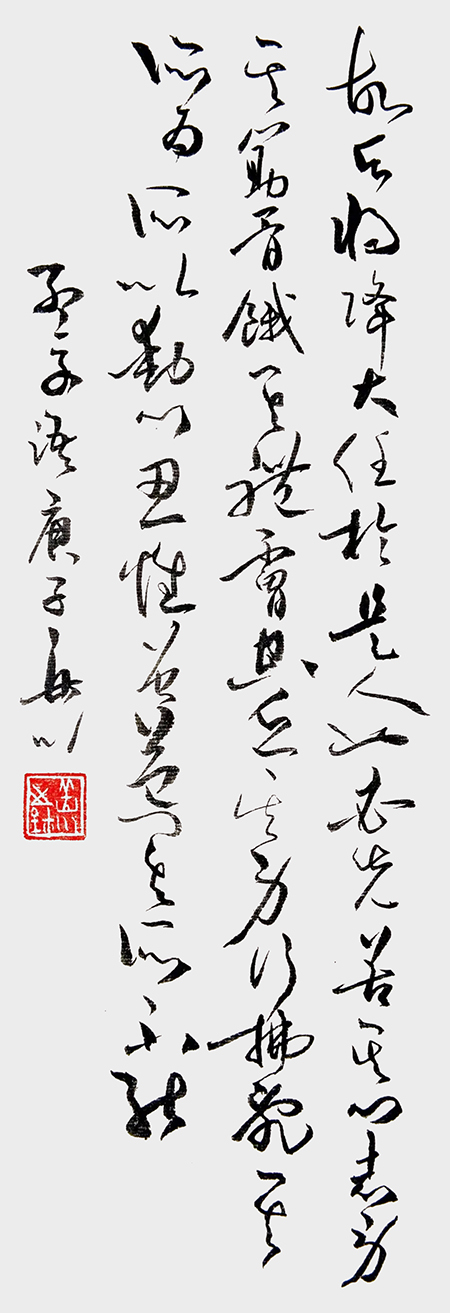 故天將降大任於是人也必先苦其心志勞
其筋骨餓其體膚空乏其身行拂亂其
所為所以動心忍性曾益其所不能
孟子語庚子